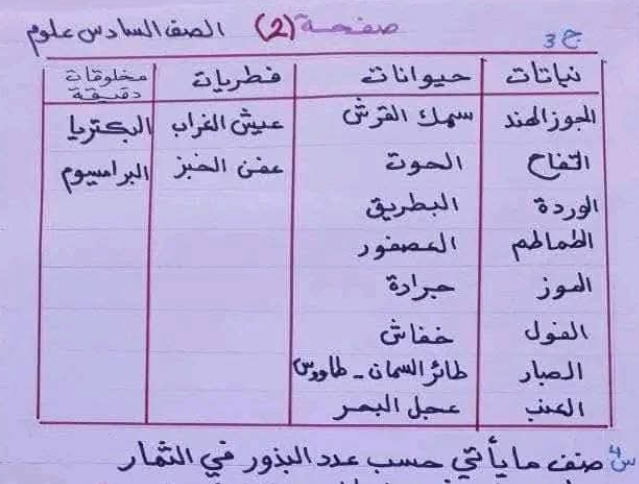 صفحة (2) الصف السادس علوم
ج3
نباتات حيوانات فطريات مخلوقات دقيقة
الجوز الهند سمك القرش عيش الغراب البكتريا
التفاح الحوت عفن الخبز البراميسوم
الوردة البطريق
الطماطم العصفور
الموز جرادة
الفول خفاش
الصبار طائر السمان - طاووس
العنب عجل البحر
س4 صنف ما يأتي حسب عدد البذور في الثمار